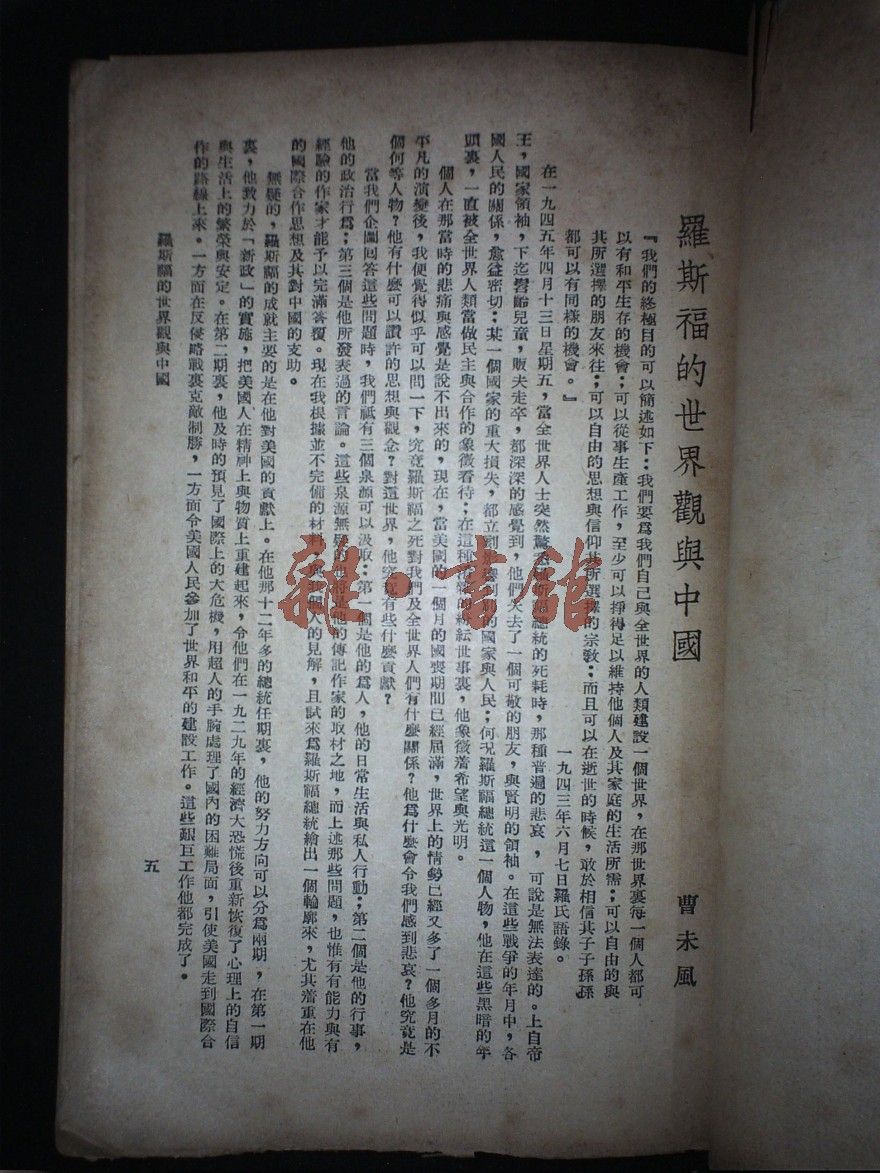 羅斯福的世界觀與中國
曹未風
『我們的終極目的可以簡述如下：我們要爲我們自己與全世界的人類建設一個世界，在那世界裏每一個人都可
以有和平生存的機會；可以從事生產工作，至少可以掙得足以維持他個人及其家庭的生活所需；可以自由的與
其所選擇的朋友來往；可以自由的思想與信仰其所選擇的宗敎；而且可以在逝世的時候，敢於相信其子子孫孫
都可以有同樣的機會。』
一九四三年六月七日羅氏語錄。
在一九四五年四月十三日星期五，當全世界人士突然驚悉羅斯福總統的死耗時，那種普遍的悲哀，可說是無法表達的。上自帝
王，國家領袖，下迄髫齡兒童，販夫走卒，都深深的感覺到，他們失去了一個可敬的朋友，與賢明的領袖。在這些戰爭的年月中，各
國人民的關係，愈益密切；某一個國家的重大損失，都立刻影響到別的國家與人民；何况羅斯福總統這一個人物，他在這些黑暗的年
頭裏，一直被全世界人類當做民主與合作的象徵看待；在這種紛紜世事裏，他象徵着希望與光明。
個人在那當時的悲痛與感覺是說不出來的，現在，當美國的一個月的國喪期間已經屆滿，世界上的情勢已經又多了一個多月的不
平凡的演變後，我便覺得似乎可以問一下，究竟羅斯福之死對我們及全世界人們有什麼關係？他爲什麼會令我們感到悲哀？他究竟是
個何等人物？他有什麼可以讚許的思想與觀念？對這世界，他究竟有些什麼貢獻？
當我們企圖回答這些問題時，我們祇有三個泉源可以汲取：第一個是他的爲人，他的日常生活與私人行動；第二個是他的行事，
他的政治行爲；第三個是他所發表過的言論。這些泉源無疑的也將是他的傳記作家的取材之地，而上述那些問題，也惟有有能力與有
經驗的作家才能予以完滿答覆。現在我根據並不完備的材料，與我個人的見解，且試來爲羅斯福總統繪出一個輪廓來，尤其着重在他
的國際合作思想及其對中國的支助。
無疑的，羅斯福的成就主要的是在他對美國的貢獻上。在他那十二年多的總統任期裏，他的努力方向可以分爲兩期，在第一期
裏，他致力於「新政」的實施，把美國人在精神上與物質上重建起來，令他們在一九二九年的經濟大恐慌後重新恢復了心理上的自信
與生活上的繁榮與安定。在第二期裏，他及時的預見了國際上的大危機，用超人的手腕處理了國內的困難局面，引使美國走到國際合
作的路線上來。一方面在反侵略戰裏克敵制勝，一方面令美國人民參加了世界和平的建設工作。這些艱巨工作他都完成了。
羅斯福的世界觀與中國
五
雜·書館